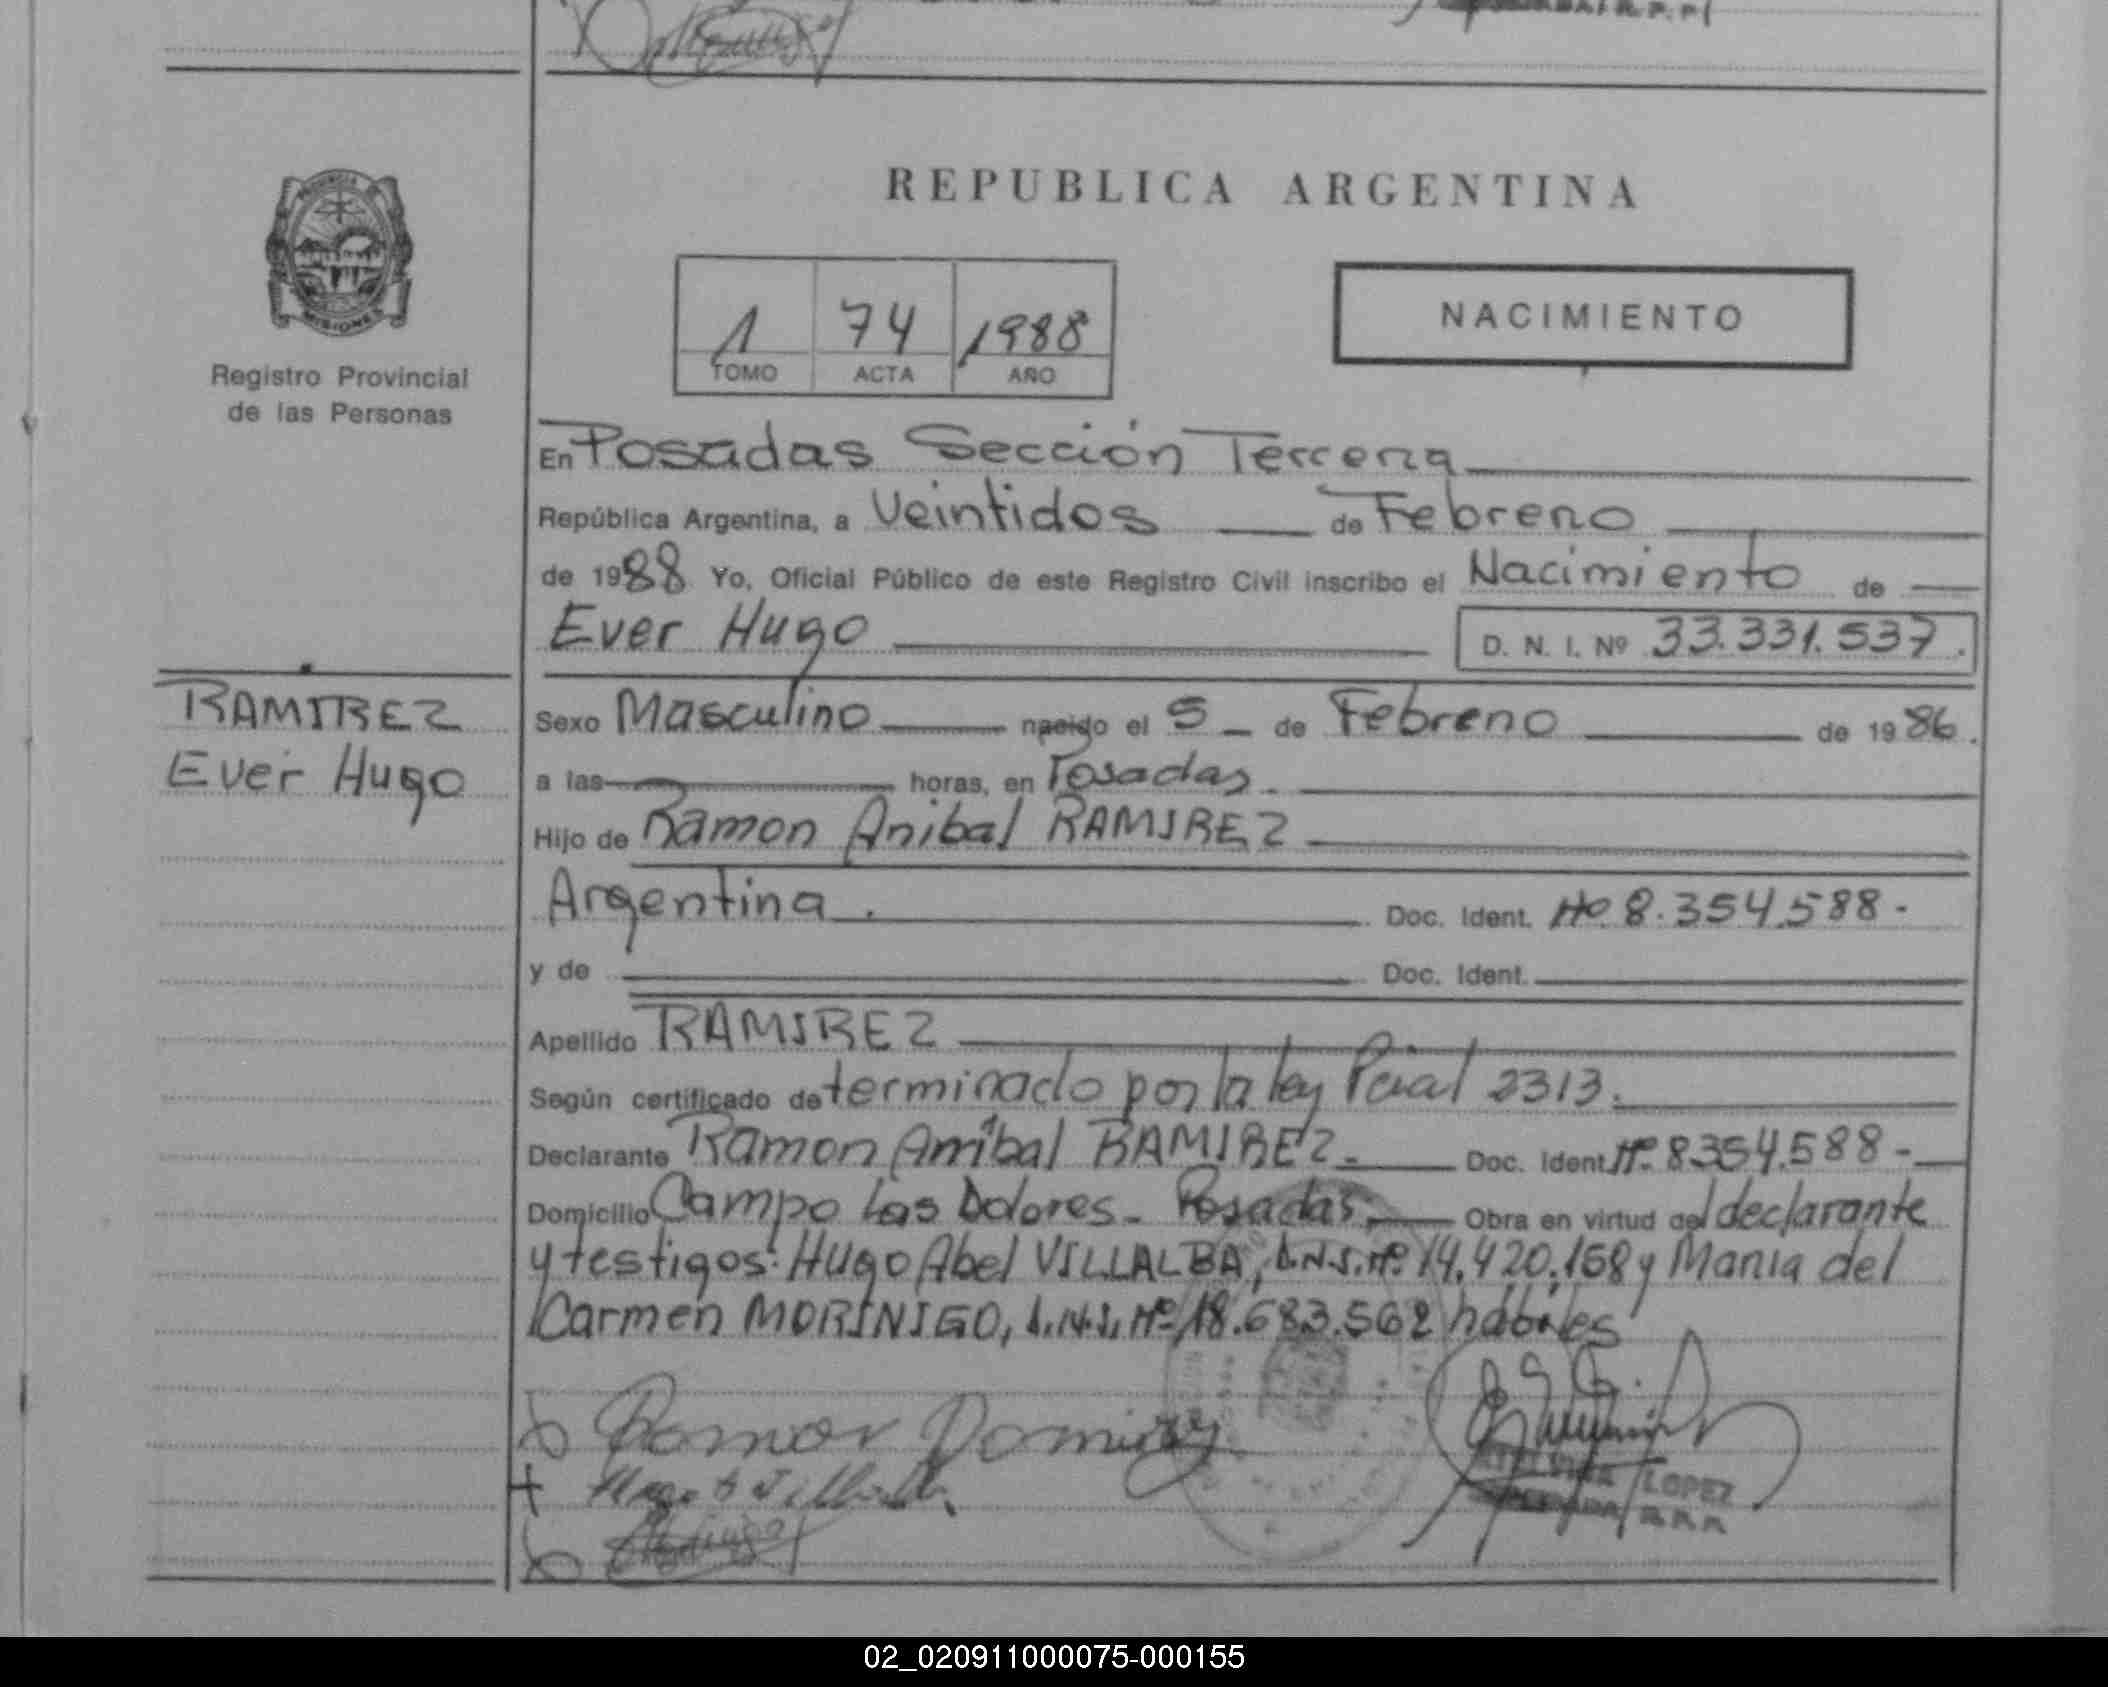 REPUBLICA ARGENTINA
PROVINCIA DE
MISIONES
Registro Provincial
de las Personas
1 74 1988
TOMO ACTA AÑO
NACIMIENTO
En Posadas Sección Tercera
República Argentina, a Veintidos de Febrero
de 1988 Yo, Oficial Público de este Registro Civil inscribo el Nacimiento de
Ever Hugo D. N. I. Nº 33.331.537.
RAMIREZ
Ever Hugo
Sexo Masculino nacido el 5 de Febrero de 1986.
a las horas, en Posadas.
Hijo de Ramon Anibal RAMIREZ
Argentina. Doc. Ident. Nº 8.354.588-
y de Doc. Ident.
Apellido RAMIREZ
Según certificado determinado por la ley Pcial 2313.
Declarante Ramon Anibal RAMIREZ.- Doc. Ident Nº 8354.588-
Domicilio Campo Las Dolores- Posadas. Obra en virtud del declarante
y testigos: Hugo Abel VILLALBA, D.N.I. Nº 14.420.158 y Maria del
Carmen MORINIGO, D.N.I. Nº 18.683.562 hábiles
Ramon Ramirez
LOPEZ
02_020911000075-000155